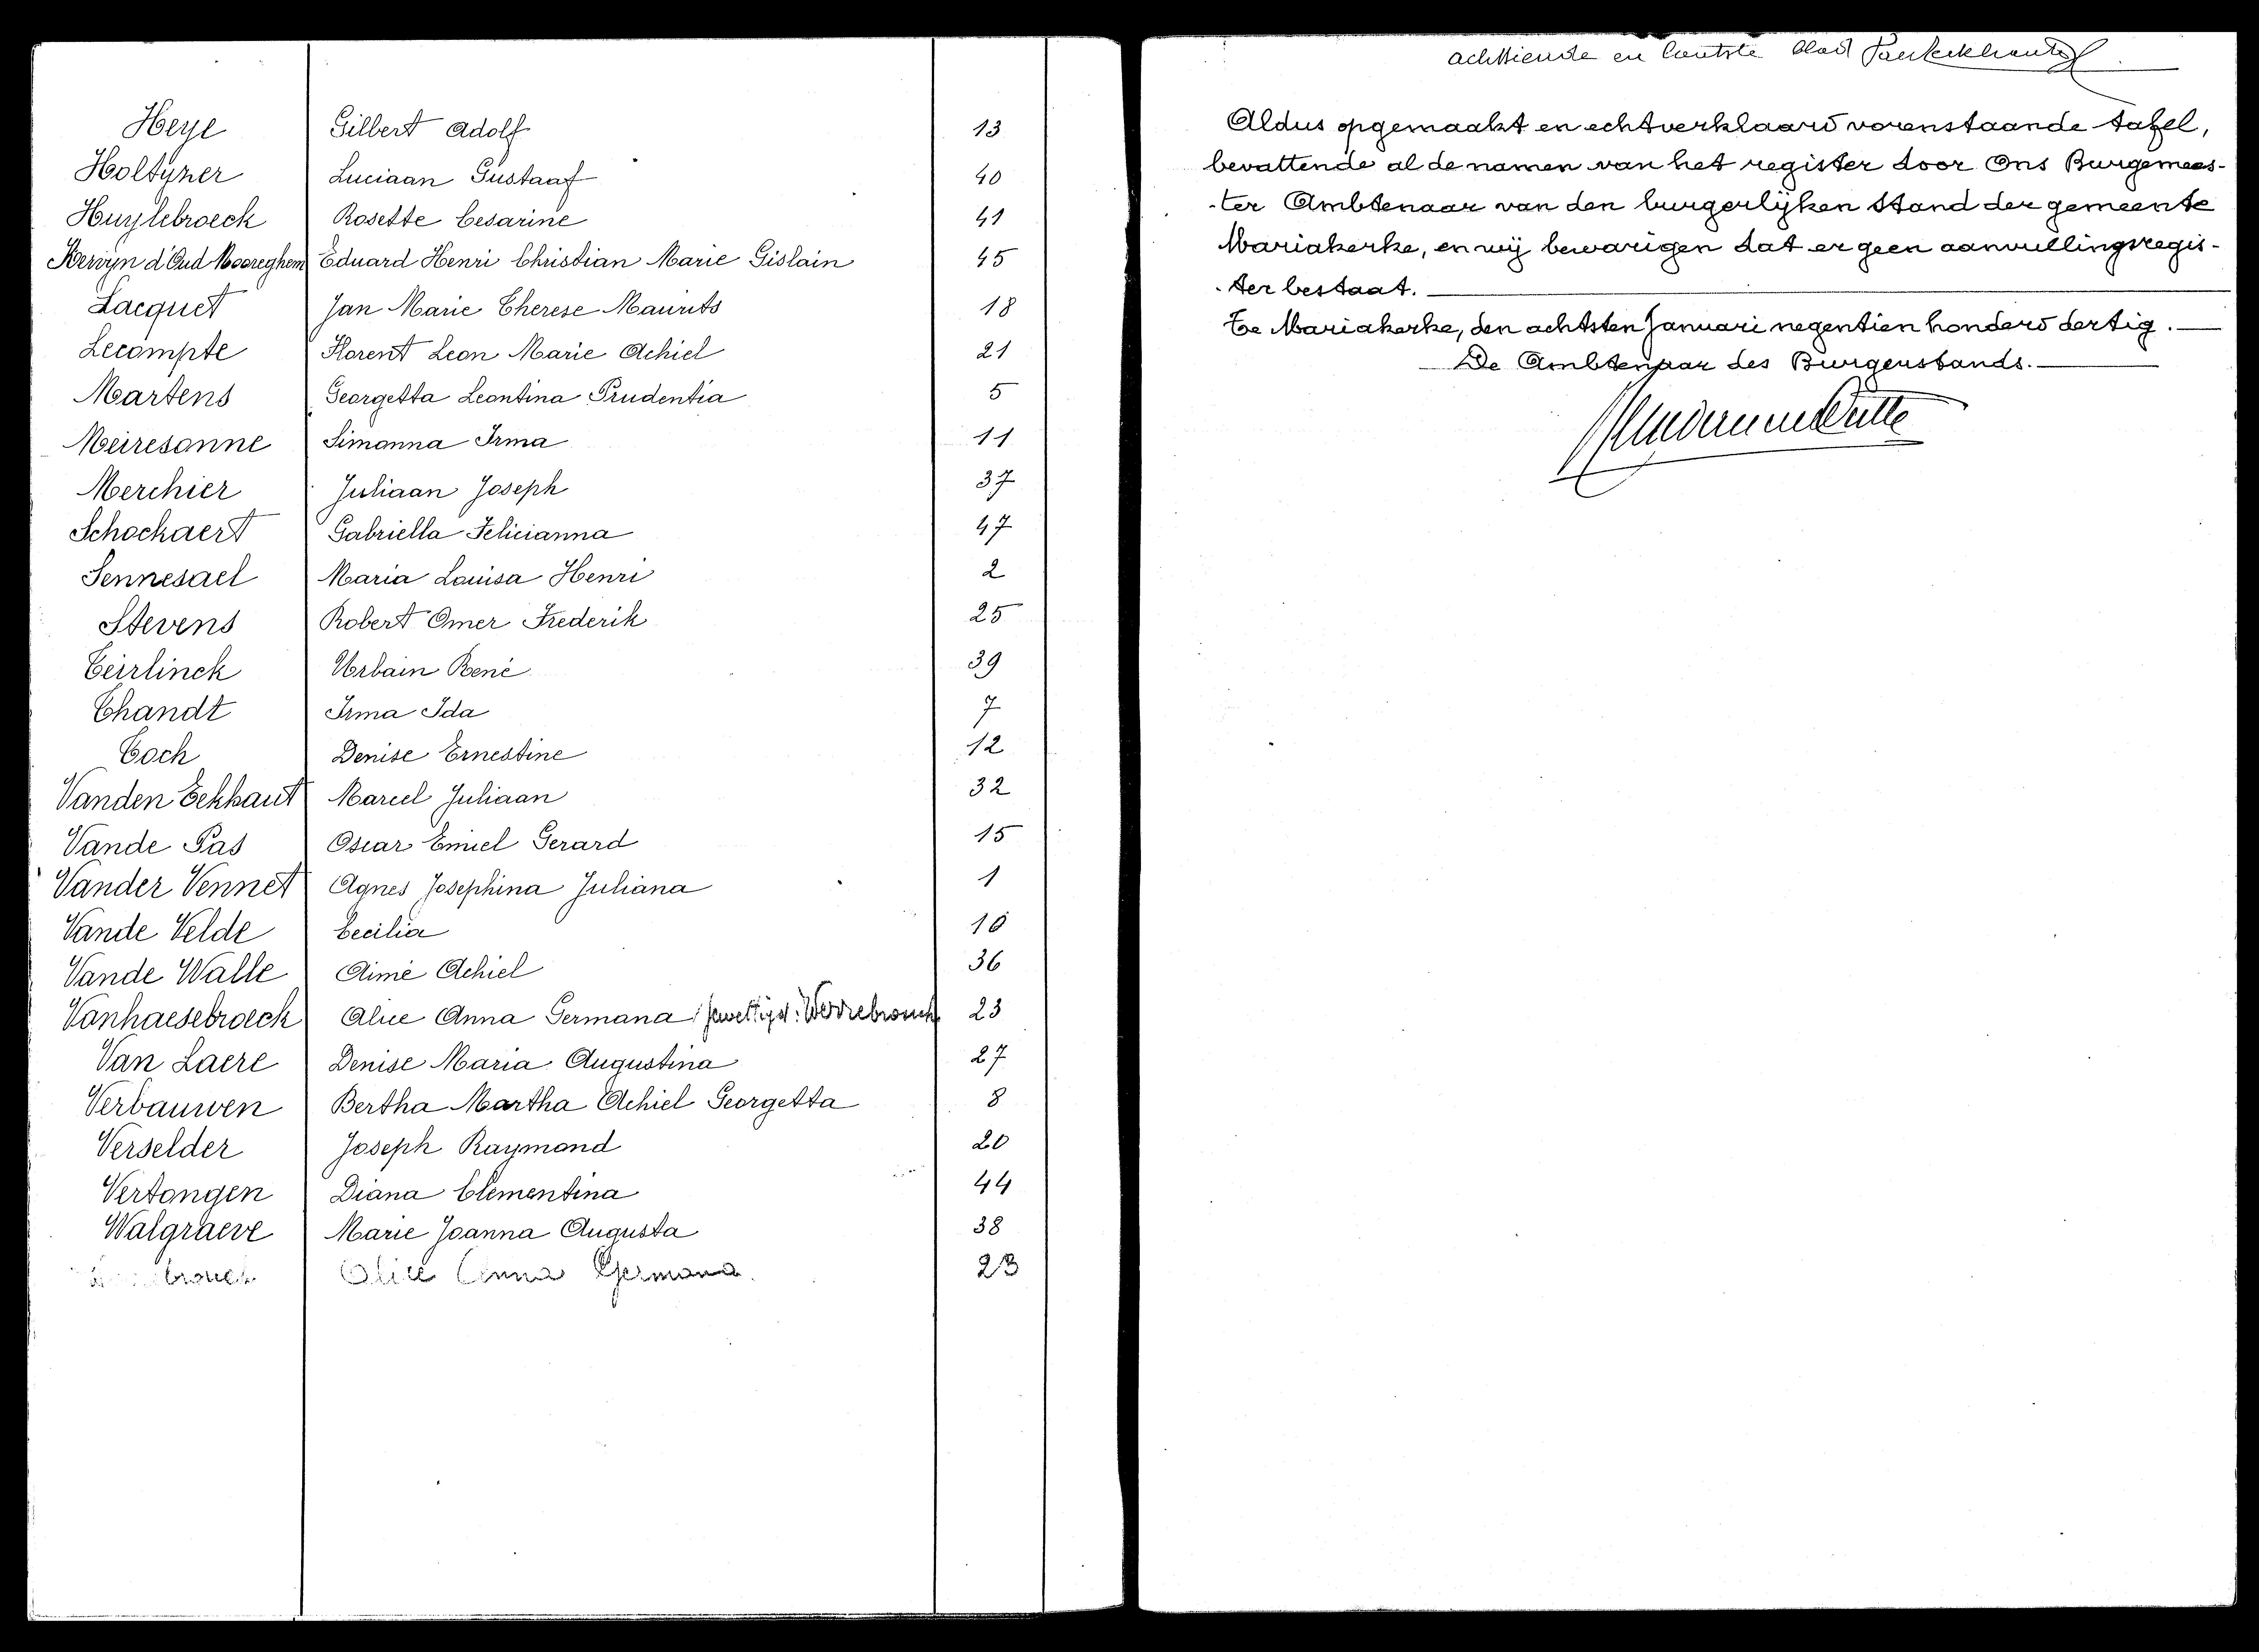 Heye Gilbert Adolf 13
Holtyzer Luciaan Gustaaf 40
Huylebroeck Rosette Cesarine 41
Kervyn d'Oud Mooreghem Eduard Henri Christian Marie Gislain 45
Lacquet Jan Marie Therese Maurits 18
Lecompte Florent Leon Marie Achiel 21
Martens Georgetta Leontina Prudentia 5
Meiresonne Simonna Irma 11
Merchier Juliaan Joseph 37
Schockaert Gabriella Felicianna 47
Sennesael Maria Louisa Henri 2
Stevens Robert Omer Frederik 25
Teirlinck Urbain René 39
Thandt Irma Ida 7
Toch Denise Ernestine 12
Vanden Eekhaut Marcel Juliaan 32
Vande Pas Oscar Emiel Gerard 15
Vander Vennet Agnes Josephina Juliana 1
Vande Velde Cecilia 10
Vande Walle Aimé Achiel 36
Vanhaesebroeck Alice Anna Germana gewettigd: Werrebrouck 23
Van Laere Denise Maria Augustina 27
Verbauwen Bertha Martha Achiel Georgetta 8
Verselder Joseph Raymond 20
Vertongen Diana Clementina 44
Walgraeve Marie Joanna Augusta 38
Alice Anna Germana. 23
achttiende en laatste blad
Aldus opgemaakt en echtverklaard vorenstaande tafel,
bevattende al de namen van het register door Ons Burgemees-
-ter Ambtenaar van den burgerlijken Stand der gemeente
Mariakerke, en wij bevarigen dat er geen aanvullingsregis-
-ter bestaat.
Te Mariakerke, den achtsten Januari negentien honderd dertig.
De Ambtenaar des Burgerstands.